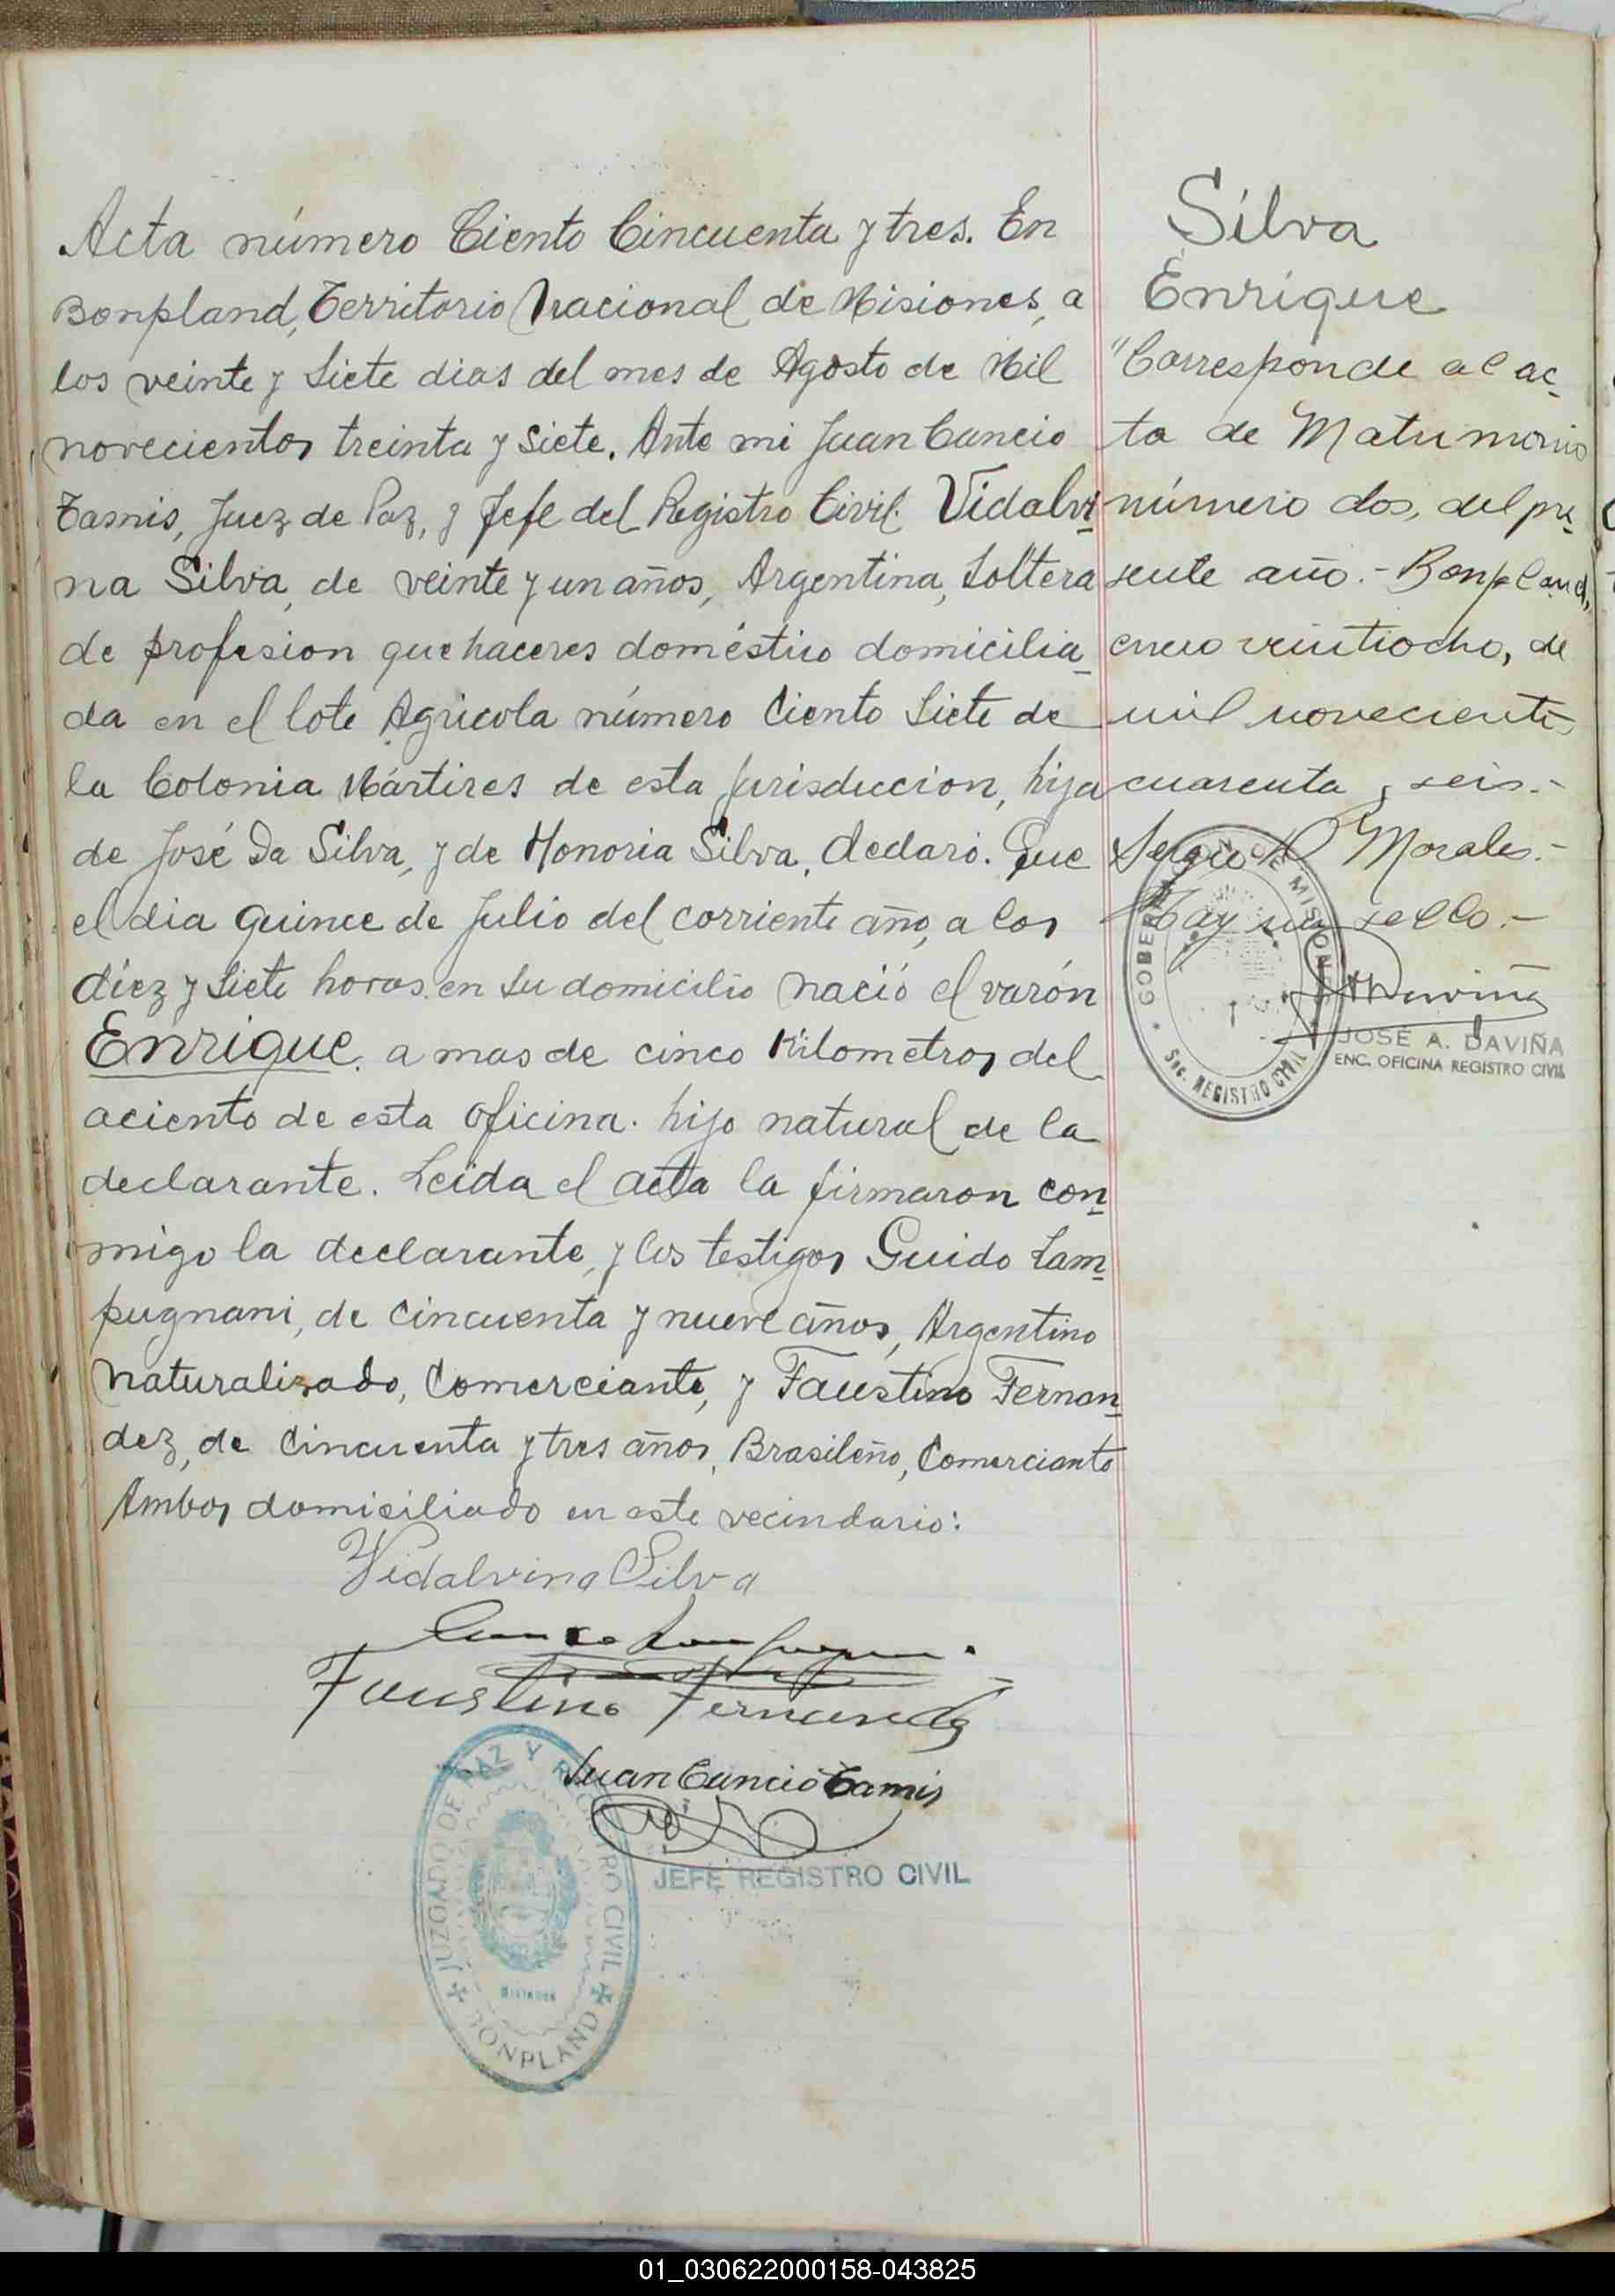 Acta número Ciento Cincuenta y tres. En
Bonpland, Territorio Nacional de Misiones, a
los veinte y Siete dias del mes de Agosto de Mil
novecientos treinta y siete. Ante mi Juan Cancio
Tamis, Juez de Paz, y Jefe del Registro Civil. Vidalvi-
na Silva, de veinte y un años, Argentina, Soltera
de profesion quehaceres doméstico domicilia-
da en el lote Agricola número Ciento Siete de
la Colonia Mártires de esta Jurisduccion, hija
de José Da Silva, y de Honoria Silva, declaró. Que
el dia quince de Julio del corriente año, a los
diez y Siete horas. en su domicilio nació el varón
Enrique. a mas de cinco Kilometros del
aciento de esta oficina. hijo natural de la
declarante. Leida el acta la firmaron con-
migo la declarante, y los testigos Guido Lam-
pugnani, de cincuenta y nueve años, Argentino
naturalizado, Comerciante, y Faustino Fernan-
dez, de cincuenta y tres años, Brasileño, Comerciante
Ambos domiciliado en este vecindario:
Vidalvina Silva
Faustino Fernandez
Juan Cancio Tamis
JEFE REGISTRO CIVIL
JUZGADO DE PAZ Y REGISTRO CIVIL
BONPLAND
Silva
Enrique
"Corresponde al ac-
ta de Matrimonio
número dos, del pre-
sente año.- Bonpland,
enero veintiocho, de
mil novecientos
cuarenta y seis.-
Sergio Morales.-
Hay un sello.-
GOBERNACION DE MISIONES
Sec. REGISTRO CIVIL
JOSE A. DAVIÑA
ENC. OFICINA REGISTRO CIVIL
01_030622000158-043825